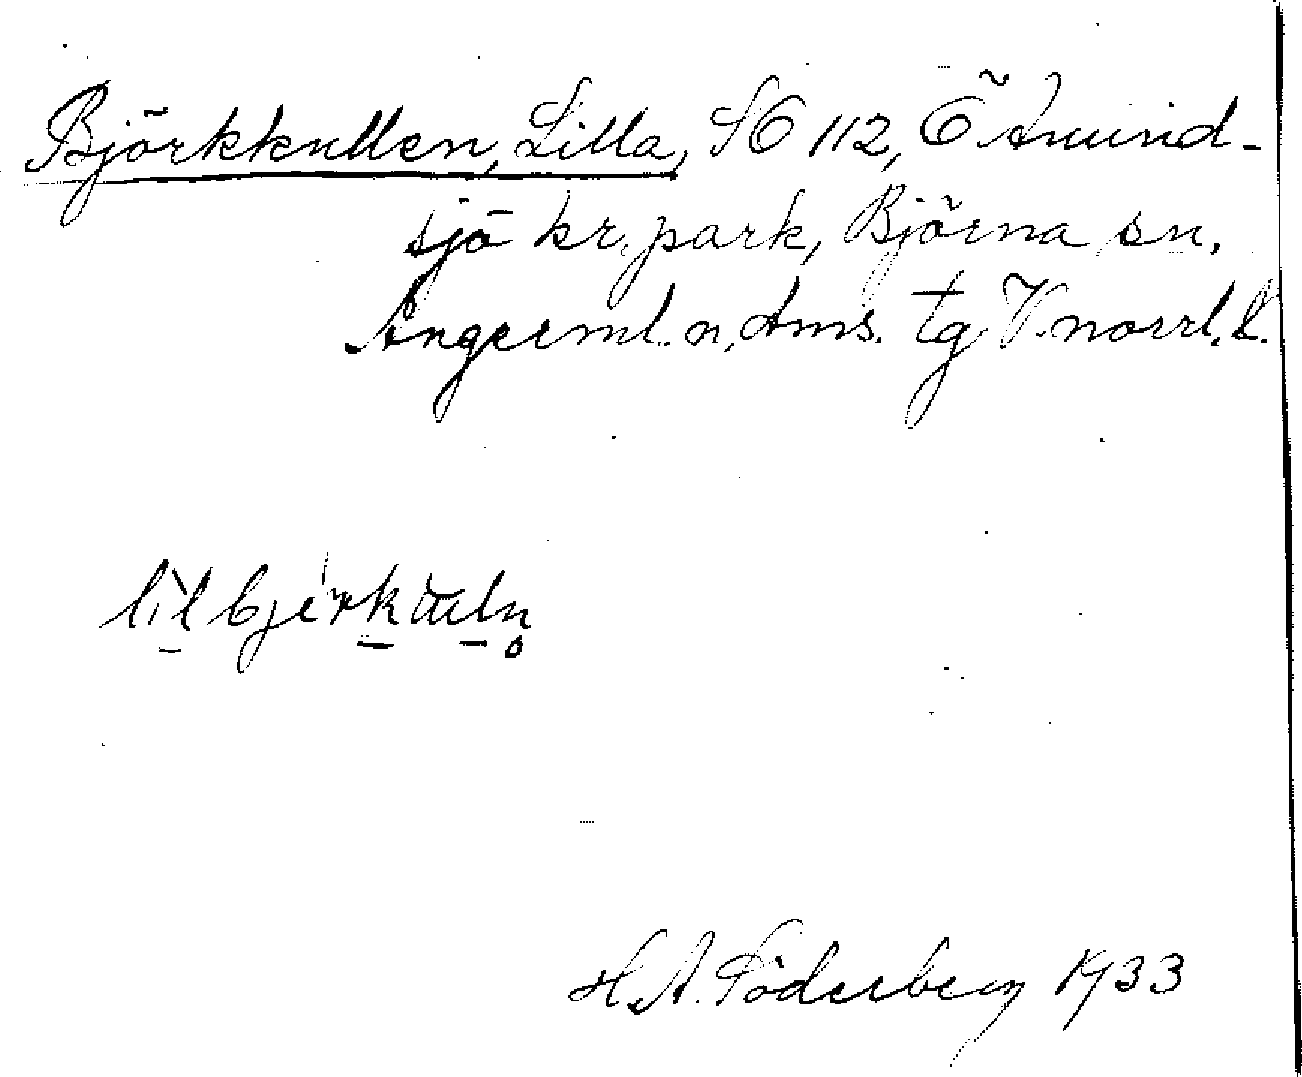 Björkkullen, Lilla, SO 112, Ö Anund-
sjö kr. park, Björna sn,
Ångerml. n, Ams. tg V.norrl. l.
lilbjerkuln
H.A. Söderberg 1933